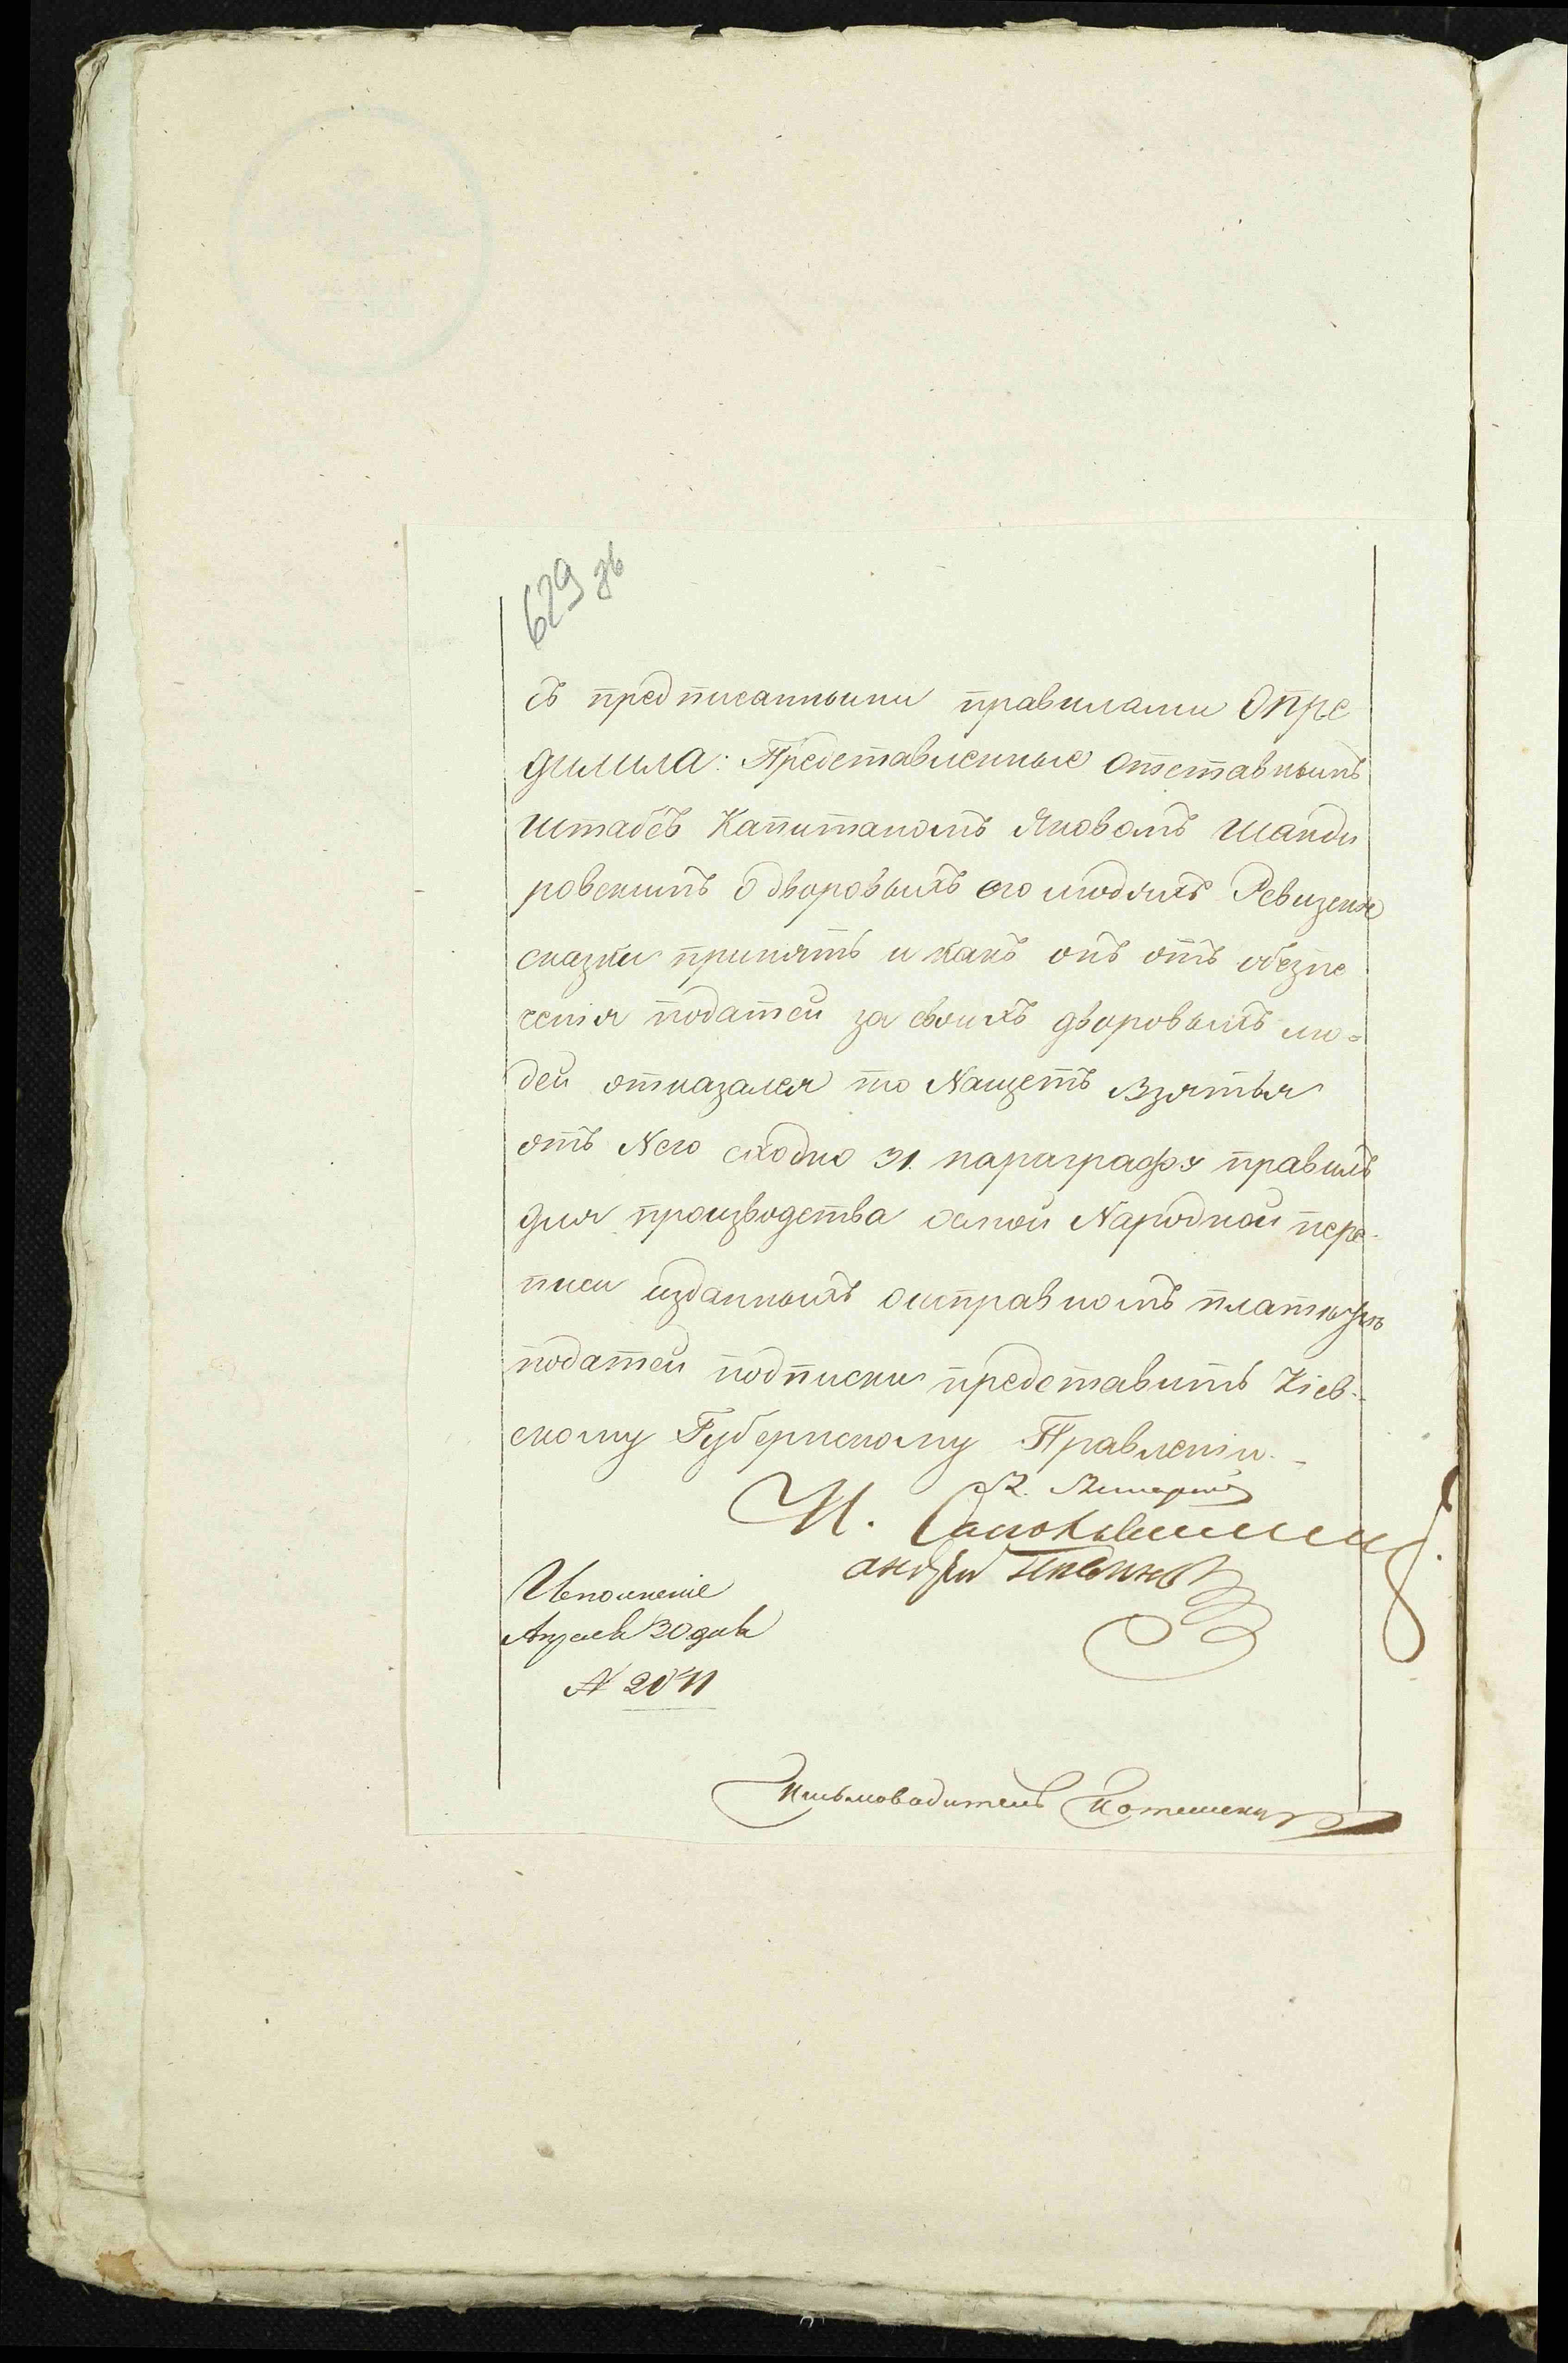 629 зв
съ предписанными правилами Опре
дилила: Представленные отставнымъ
штабсъ Капитаномъ Яковомъ Шанди
ровскимъ о дворовыхъ его людяхъ Ревизские
сказки принять и какъ онъ отъ обезпе
ченія податей за своихъ дворовыхъ лю=
дей отказался то Нащетъ Взятья
отъ Него сходно 31. параграфу правилъ
для производства осмой Народной пере-
писи изданныхъ оисправномъ платеже
податей подписки представить Кіев-
скому Губернскому Правленію.
И.
Андрей
Исполненіе
Апреля 30 дня
№ 2041
Письмоводитель